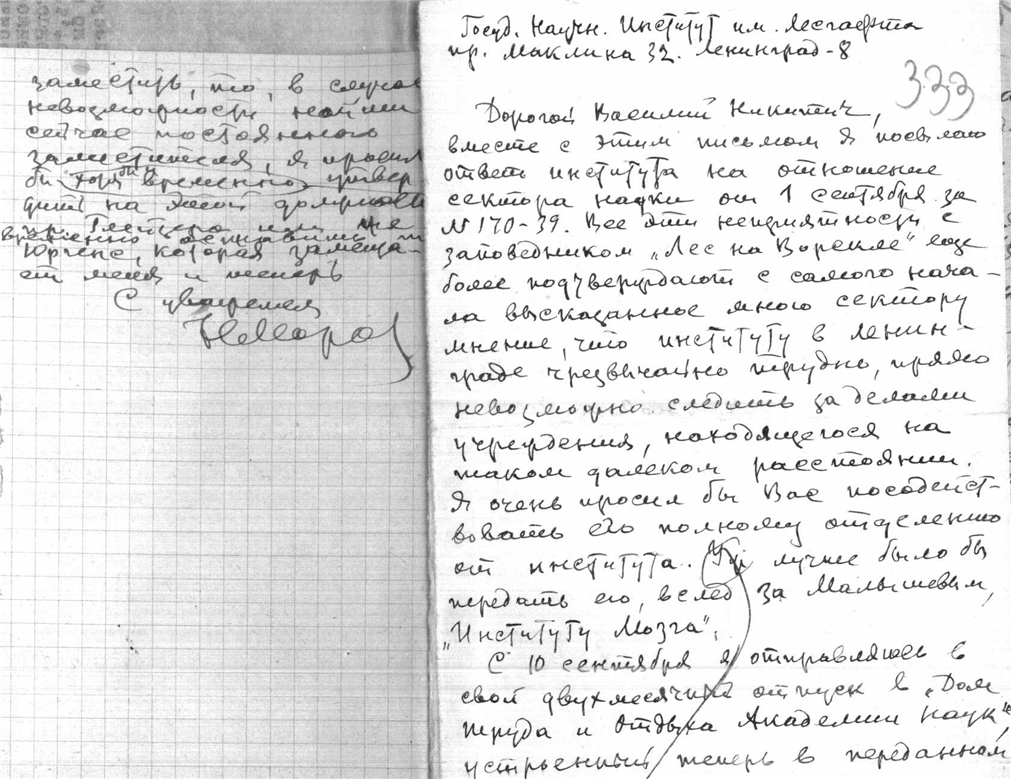 заместить, то, в случае
невозможности найти
сейчас постоянного
заместителя, я просил
бы хотя бы временно утвер
дить на моей должности
временно оставить
Юргенс, которая замеща-
ет меня и теперь
С уважением
НМороз
Госуд. Научн. Институт им. Лесгафта
пр. Маклина 32. Ленинград-8
333
Дорогой Василий Никитич,
вместе с этим письмом я посылаю
ответ института на отношение
сектора науки от 1 сентября за
№ 170-39. Все эти неприятности с
заповедником „Лес на Ворскле" еще
более подтверждают с самого нача-
ла высказанное мною сектору
мнение, что институту в Ленин-
граде чрезвычайно трудно, прямо
невозможно следить за делами
учреждения, находящегося на
таком далеком расстоянии.
Я очень просил бы Вас посодейст-
вовать его полному отделению
от института. лучше было бы
передать его, вслед за Малышевым,
„Институту Мозга".
С 10 сентября я отправляюсь в
свой двухмесячный отпуск в „Дом
труда и отдыха Академии Наук"
устроенный теперь в переданном